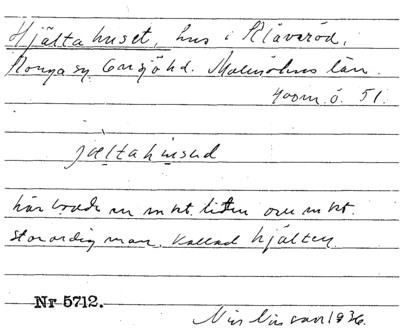 Hjältahuset, hus i Klåveröd,
Konga sn. Onsjö hd. Malmöhus län.
400 m. ö. 51.
jæltahused
här bodde en mkt. liten om mkt.
storordig man, kallad hjälten.
Nr 5712.
Nils Nilsson 1936.